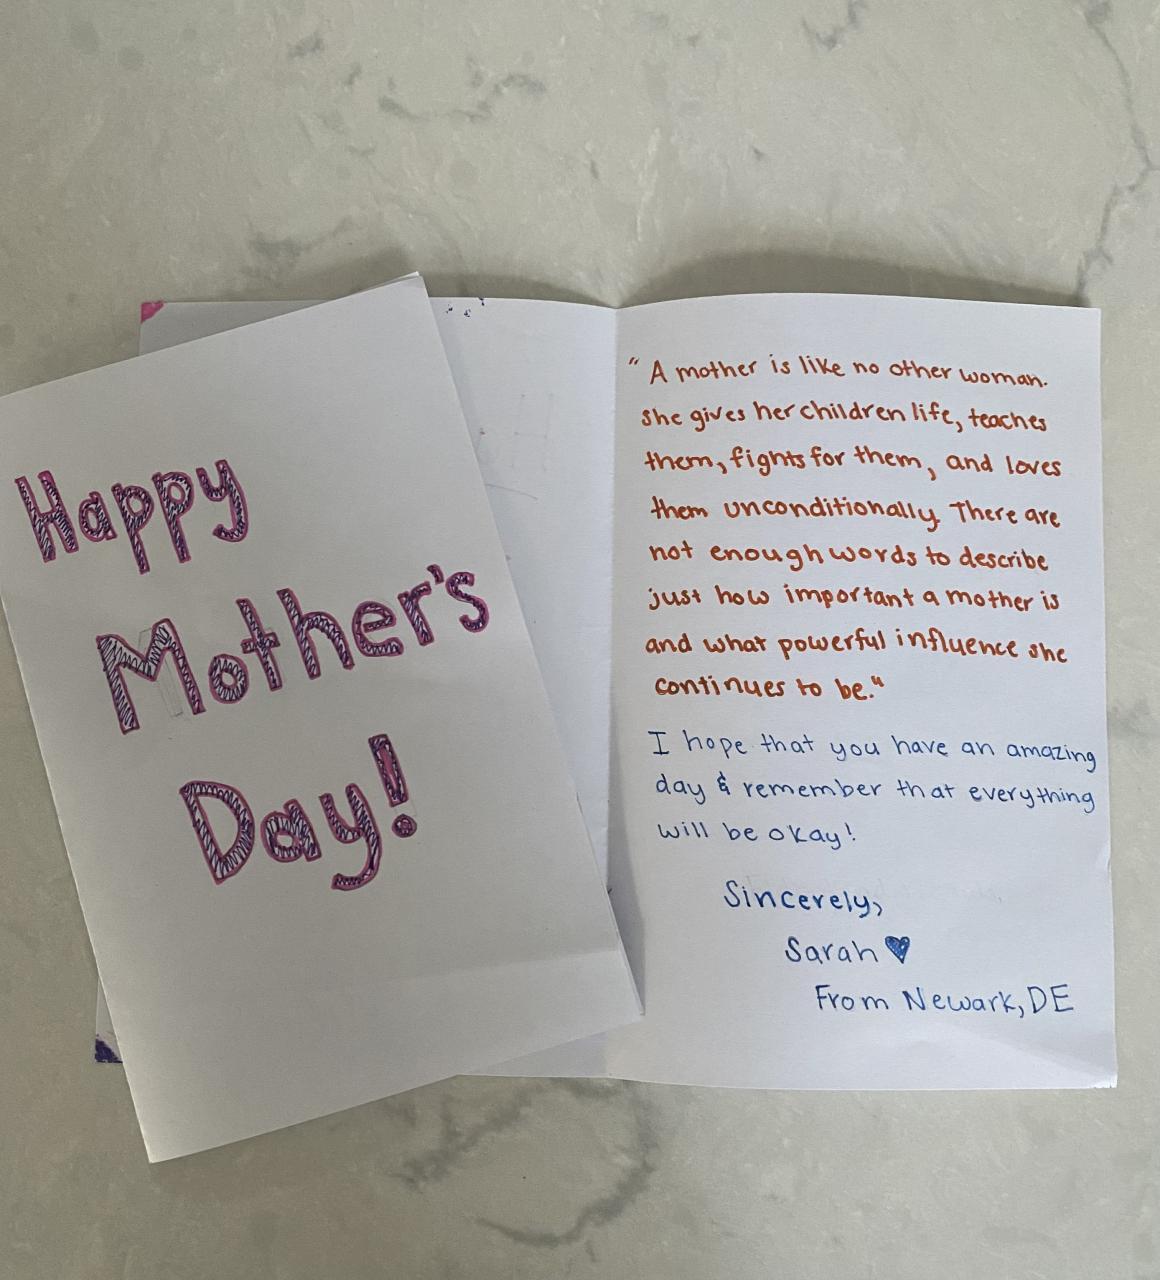 Happy
Mother's
Day!
"A mother is like no other woman.
She gives her children life, teaches
them, fights for them, and loves
them unconditionally. There are
not enough words to describe
just how important a mother is
and what powerful influence she
continues to be."
I hope that you have an amazing
day & remember that everything
will be okay!
Sincerely,
Sarah
From Newark, DE